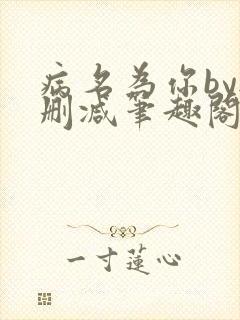 病名为你by
删减笔趣阁
一寸莲心